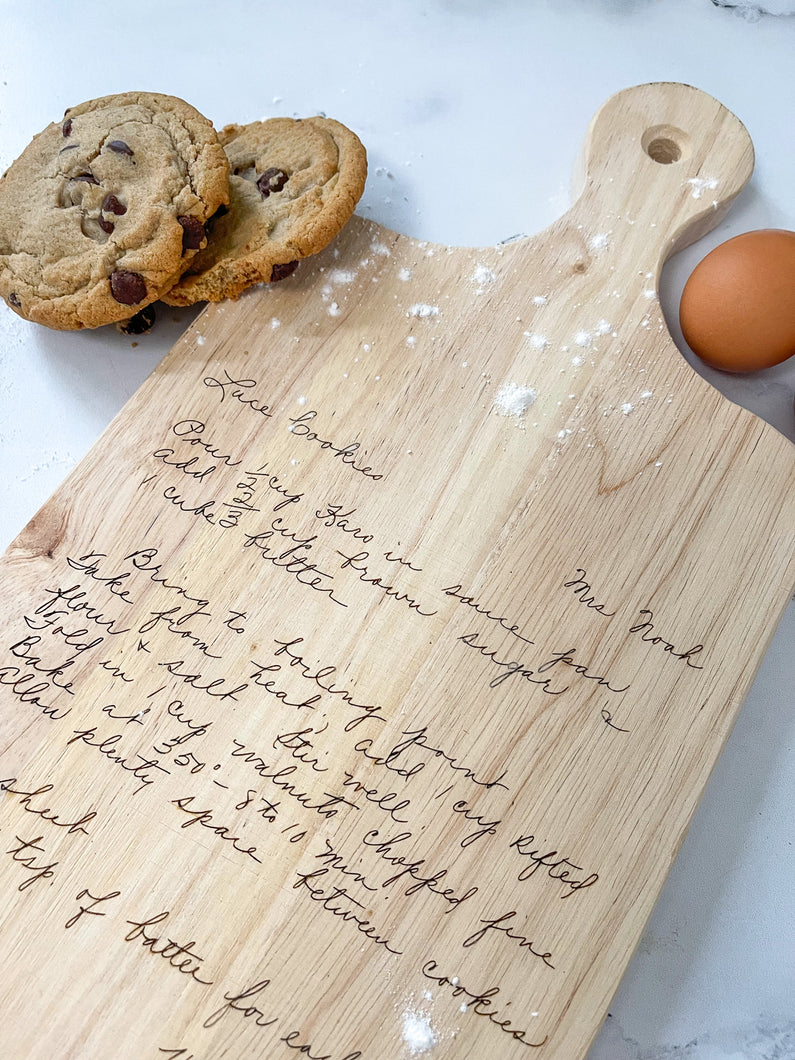 Luce Cookies
Mrs Noah
Pour 1/2 cup Karo in sauce pan
add 2/3 cup brown sugar &
1 cube butter
Bring to boiling point
Take from heat, add 1 cup sifted
flour & salt Stir well.
Fold in 1 cup walnuts chopped fine
Bake at 350° - 8 to 10 min.
allow plenty spaire between cookies
sheet
tsp. of batter for each